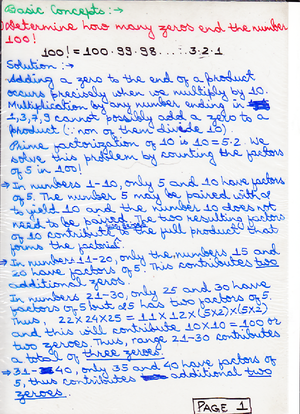 Basic Concepts :→
Determine how many zeros end the number
100!
100! = 100·99·98.....3·2·1
Solution :→
Adding a zero to the end of a product
occurs precisely when we multiply by 10.
Multiplication by any number ending in
1,3,7,9 cannot possibly add a zero to a
product (∵ non of them divide 10).
Prime factorization of 10 is 10=5·2. We
solve this problem by counting the factors
of 5 in 100!
→ In numbers 1-10, only 5 and 10 have factors
of 5. The number 5 may be paired with 2
to yield 10 and the number 10 does not
need to be paired. The two resulting factors
of 10 contribute to the full product that
forms the factorial.
→ In numbers 11-20, only the numbers 15 and
20 have factors of 5. This contributes two
additional zeros.
In numbers 21-30, only 25 and 30 have
factors of 5 but 25 has two factors of 5
Thus, 22×24×25 = 11×12×(5×2)×(5×2)
and this will contribute 10×10=100 or
two zeroes. Thus, range 21-30 contributes
a total of three zeroes.
→ 31-40, only 35 and 40 have factors of
5, thus contributes additional two
zeroes.
PAGE 1